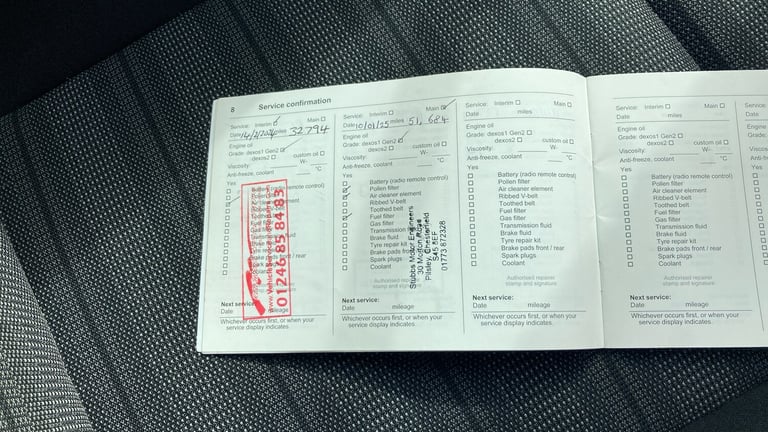 8 Service confirmation
Service: Interim Main
Date 14/2/2024 miles 32794
Engine oil
Grade: dexos1 Gen2
dexos2 custom oil
Viscosity: W-
Anti-freeze, coolant °C
Yes
Battery (radio remote control)
01246 85 84 83
Next service:
Date mileage
Whichever occurs first, or when your
service display indicates.
Service: Interim Main
Date 10/01/25 miles 51,684
Engine oil
Grade: dexos1 Gen2
dexos2 custom oil
Viscosity: W-
Anti-freeze, coolant °C
Yes
Battery (radio remote control)
Pollen filter
Air cleaner element
Ribbed V-belt
Toothed belt
Fuel filter
Gas filter
Transmission fluid
Brake fluid
Tyre repair kit
Brake pads front / rear
Spark plugs
Coolant
Authorised repairer
stamp and signature
Stubbs Motor Engineers
Pilsley, Chesterfield
S45 8EF
01773 872328
Next service:
Date mileage
Whichever occurs first, or when your
service display indicates.
Service: Interim Main
Date miles
Engine oil
Grade: dexos1 Gen2
dexos2 custom oil
Viscosity: W-
Anti-freeze, coolant °C
Yes
Battery (radio remote control)
Pollen filter
Air cleaner element
Ribbed V-belt
Toothed belt
Fuel filter
Gas filter
Transmission fluid
Brake fluid
Tyre repair kit
Brake pads front / rear
Spark plugs
Coolant
Authorised repairer
stamp and signature
Next service:
Date mileage
Whichever occurs first, or when your
service display indicates.
Service: Interim Main
Date miles
Engine oil
Grade: dexos1 Gen2
dexos2 custom oil
Viscosity: W-
Anti-freeze, coolant °C
Yes
Battery (radio remote control)
Pollen filter
Air cleaner element
Ribbed V-belt
Toothed belt
Fuel filter
Gas filter
Transmission fluid
Brake fluid
Tyre repair kit
Brake pads front / rear
Spark plugs
Coolant
Authorised repairer
stamp and signature
Next service:
Date mileage
Whichever occurs first, or when your
service display indicates.
Service:
Date
Engine oil
Grade:
Viscosity:
Anti-freeze
Yes
Next service:
Date
Whichever
service